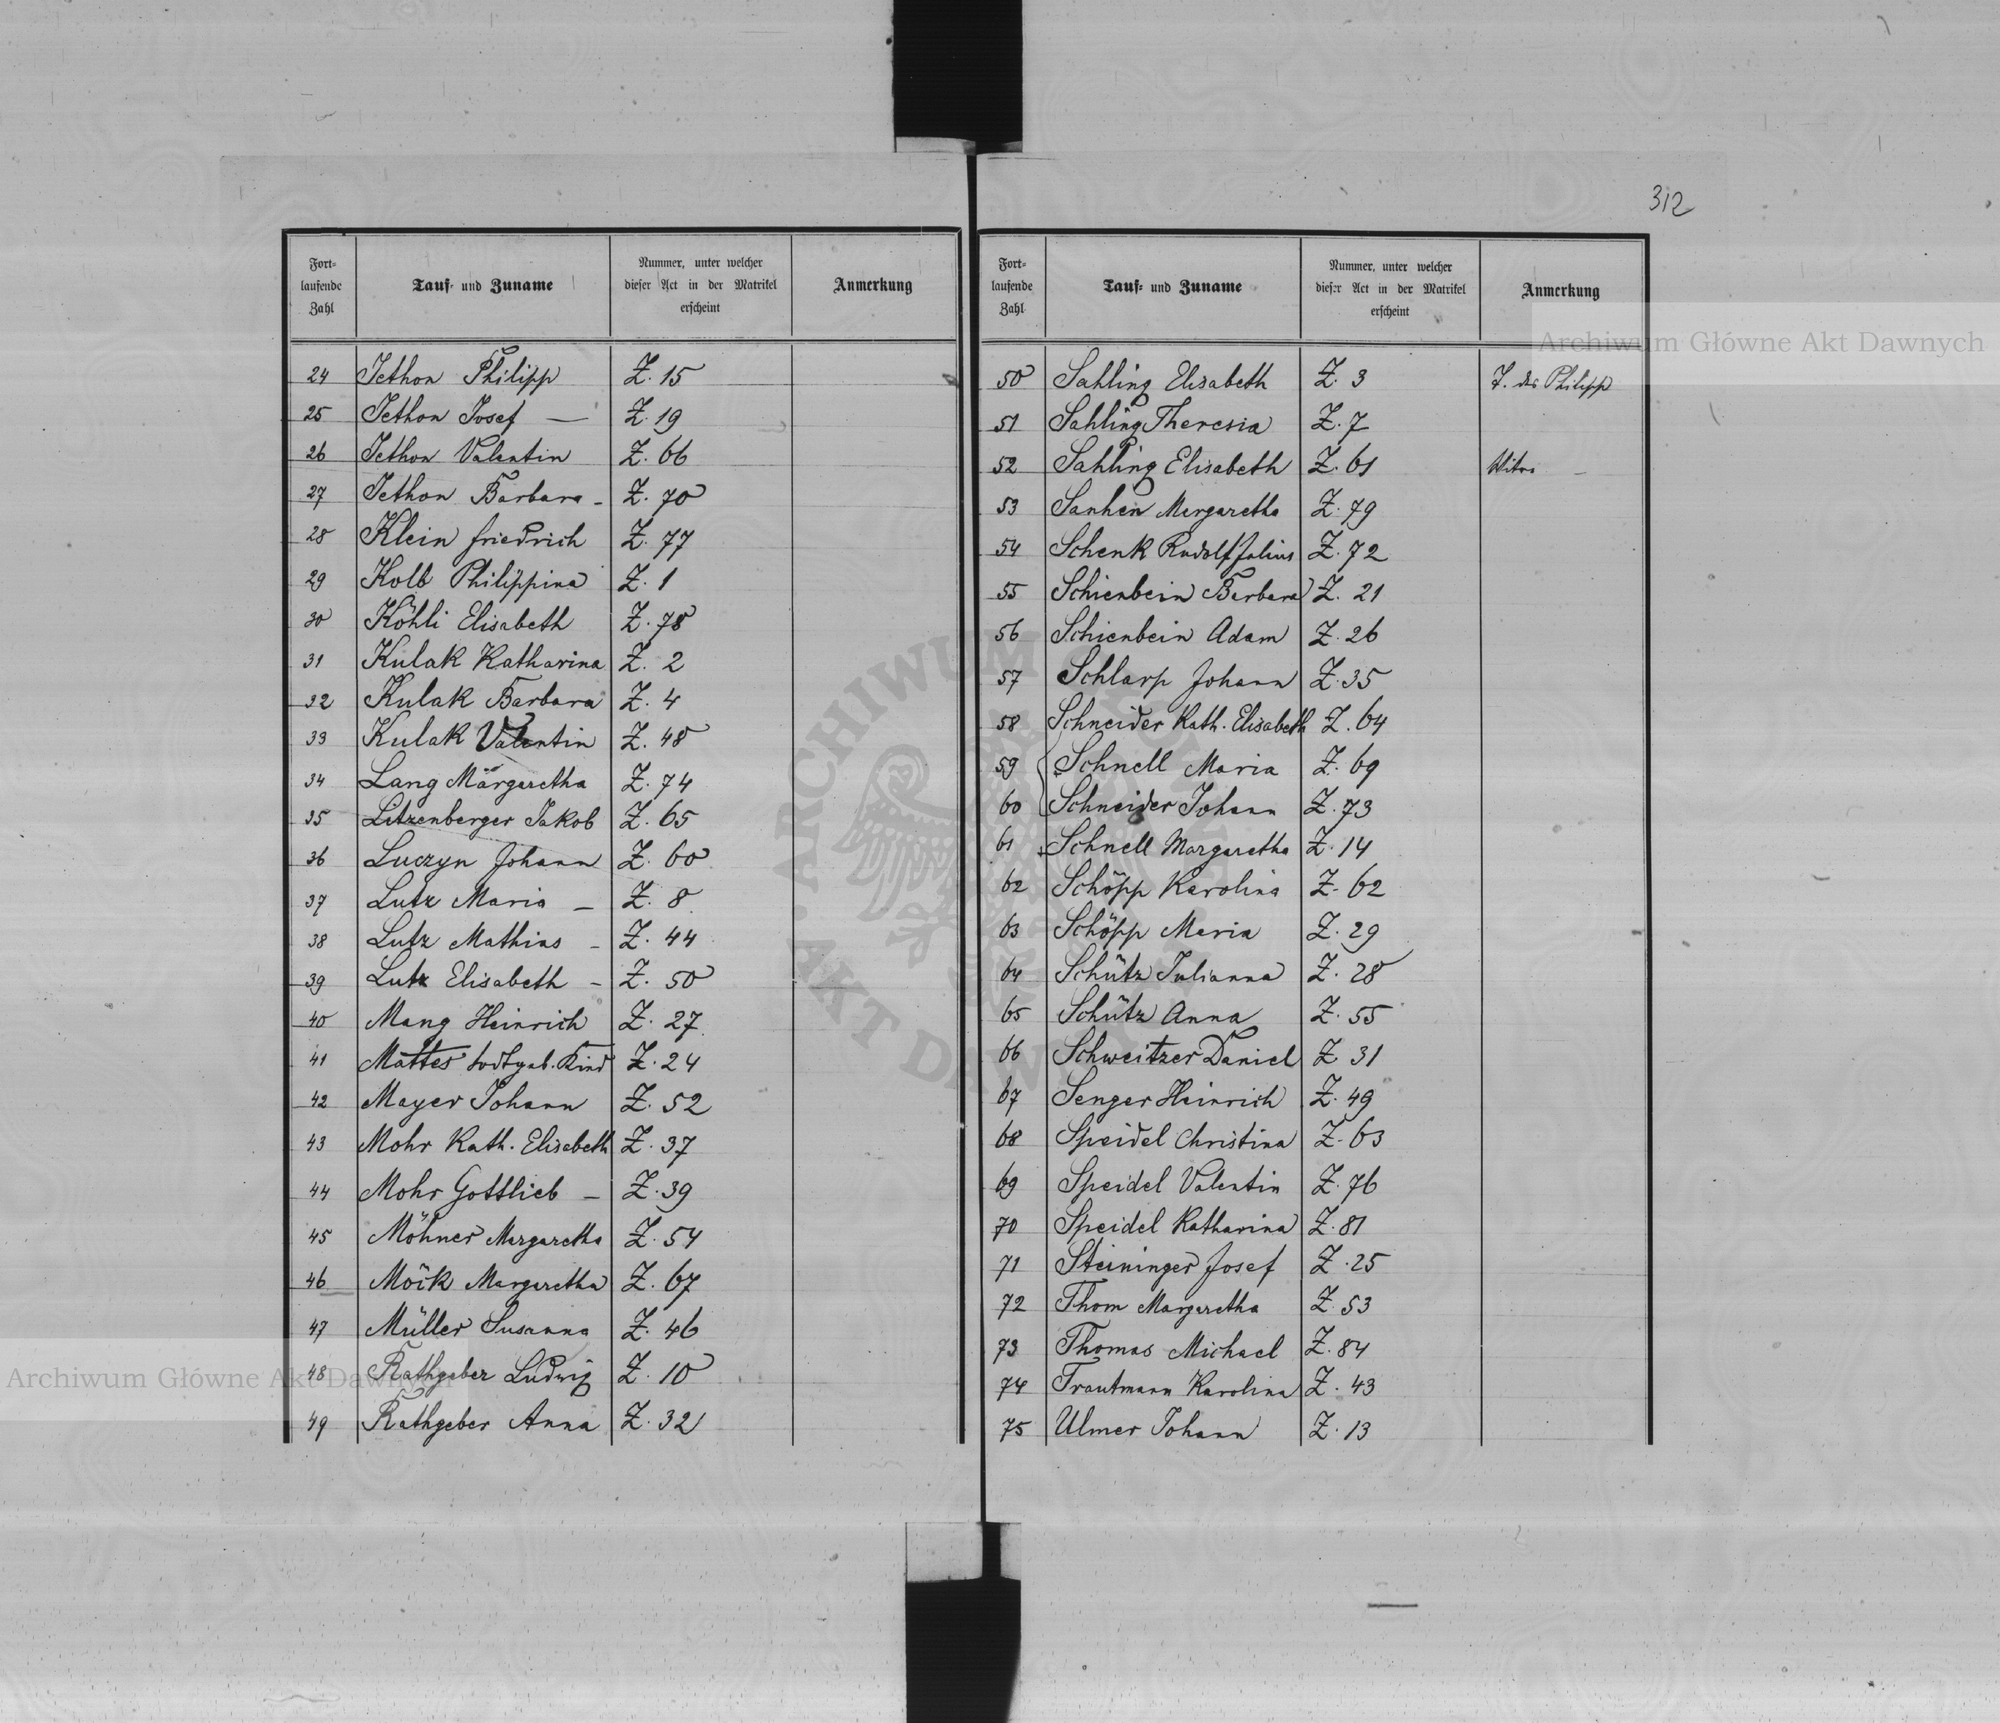 312
Fort-
laufende
Zahl
Tauf- und Zuname
Nummer, unter welcher
dieser Act in der Matrikel
erscheint
Anmerkung
24 Jethon Philipp Z. 15
25 Jethon Josef — Z. 19
26 Jethon Valentin Z. 66
27 Jethon Barbara - Z. 70
28 Klein Friedrich Z. 77
29 Kolb Philippina Z. 1
30 Köhli Elisabeth Z. 78
31 Kulak Katharina Z. 2
32 Kulak Barbara Z. 4
33 Kulak Valentin Z. 48
34 Lang Margaretha Z. 74
35 Litzenberger Jakob Z. 65
36 Luczyn Johann Z. 60
37 Lutz Maria — Z. 8
38 Lutz Mathias - Z. 44
39 Lutz Elisabeth - Z. 50
40 Mang Heinrich Z. 27
41 Mattes todtgeb. Kind Z. 24
42 Mayer Johann Z. 52
43 Mohr Kath. Elisabeth Z. 37
44 Mohr Gottlieb — Z. 39
45 Möhner Margaretha Z. 54
46 Möck Margaretha Z. 67
47 Müller Susanna Z. 46
48 Rathgeber Ludwig Z. 10
49 Rathgeber Anna Z. 32
Fort-
laufende
Zahl
Tauf- und Zuname
Nummer, unter welcher
dieser Act in der Matrikel
erscheint
Anmerkung
50 Sahling Elisabeth Z. 3 T. des Philipp
51 Sahling Theresia Z. 7
52 Sahling Elisabeth Z. 61
53 Sanhen Margaretha Z. 79
54 Schenk Rudolf Julius Z. 72
55 Schienbein Barbara Z. 21
56 Schienbein Adam Z. 26
57 Schlarp Johann Z. 35
58 Schneider Kath. Elisabeth Z. 64
59 Schnell Maria Z. 69
60 Schneider Johann Z. 73
61 Schnell Margaretha Z. 14
62 Schöpp Karolina Z. 62
63 Schöpp Maria Z. 29
64 Schütz Julianna Z. 28
65 Schütz Anna Z. 55
66 Schweitzer Daniel Z. 31
67 Senger Heinrich Z. 49
68 Speidel Christina Z. 63
69 Speidel Valentin Z. 76
70 Speidel Katharina Z. 81
71 Steininger Josef Z. 25
72 Thom Margaretha Z. 53
73 Thomas Michael Z. 84
74 Trautmann Karolina Z. 43
75 Ulmer Johann Z. 13
Archiwum Główne Akt Dawnych
Archiwum Główne Akt Dawnych
ARCHIWUM GŁÓWNE AKT DAWNYCH